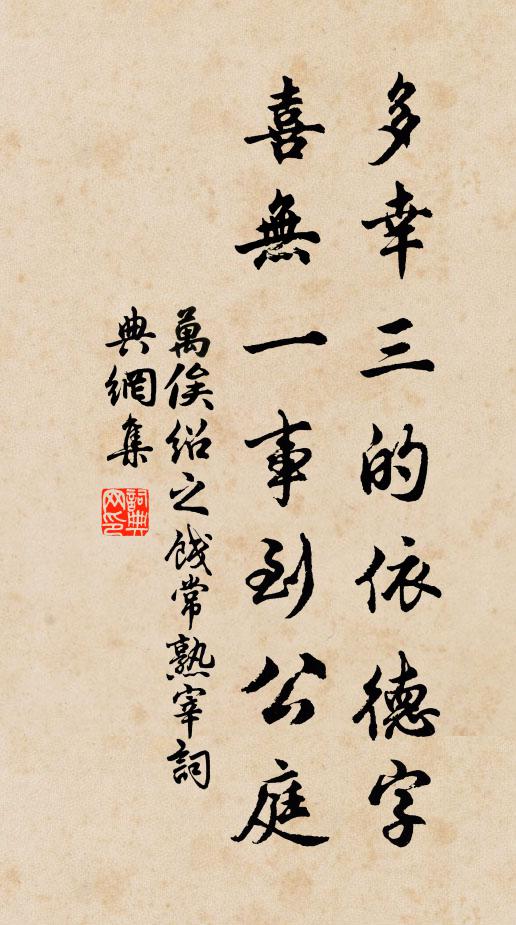 多幸三的依德字
喜無一事到公庭
萬俟紹之餞常熟宰詞
典網集
詞典網印